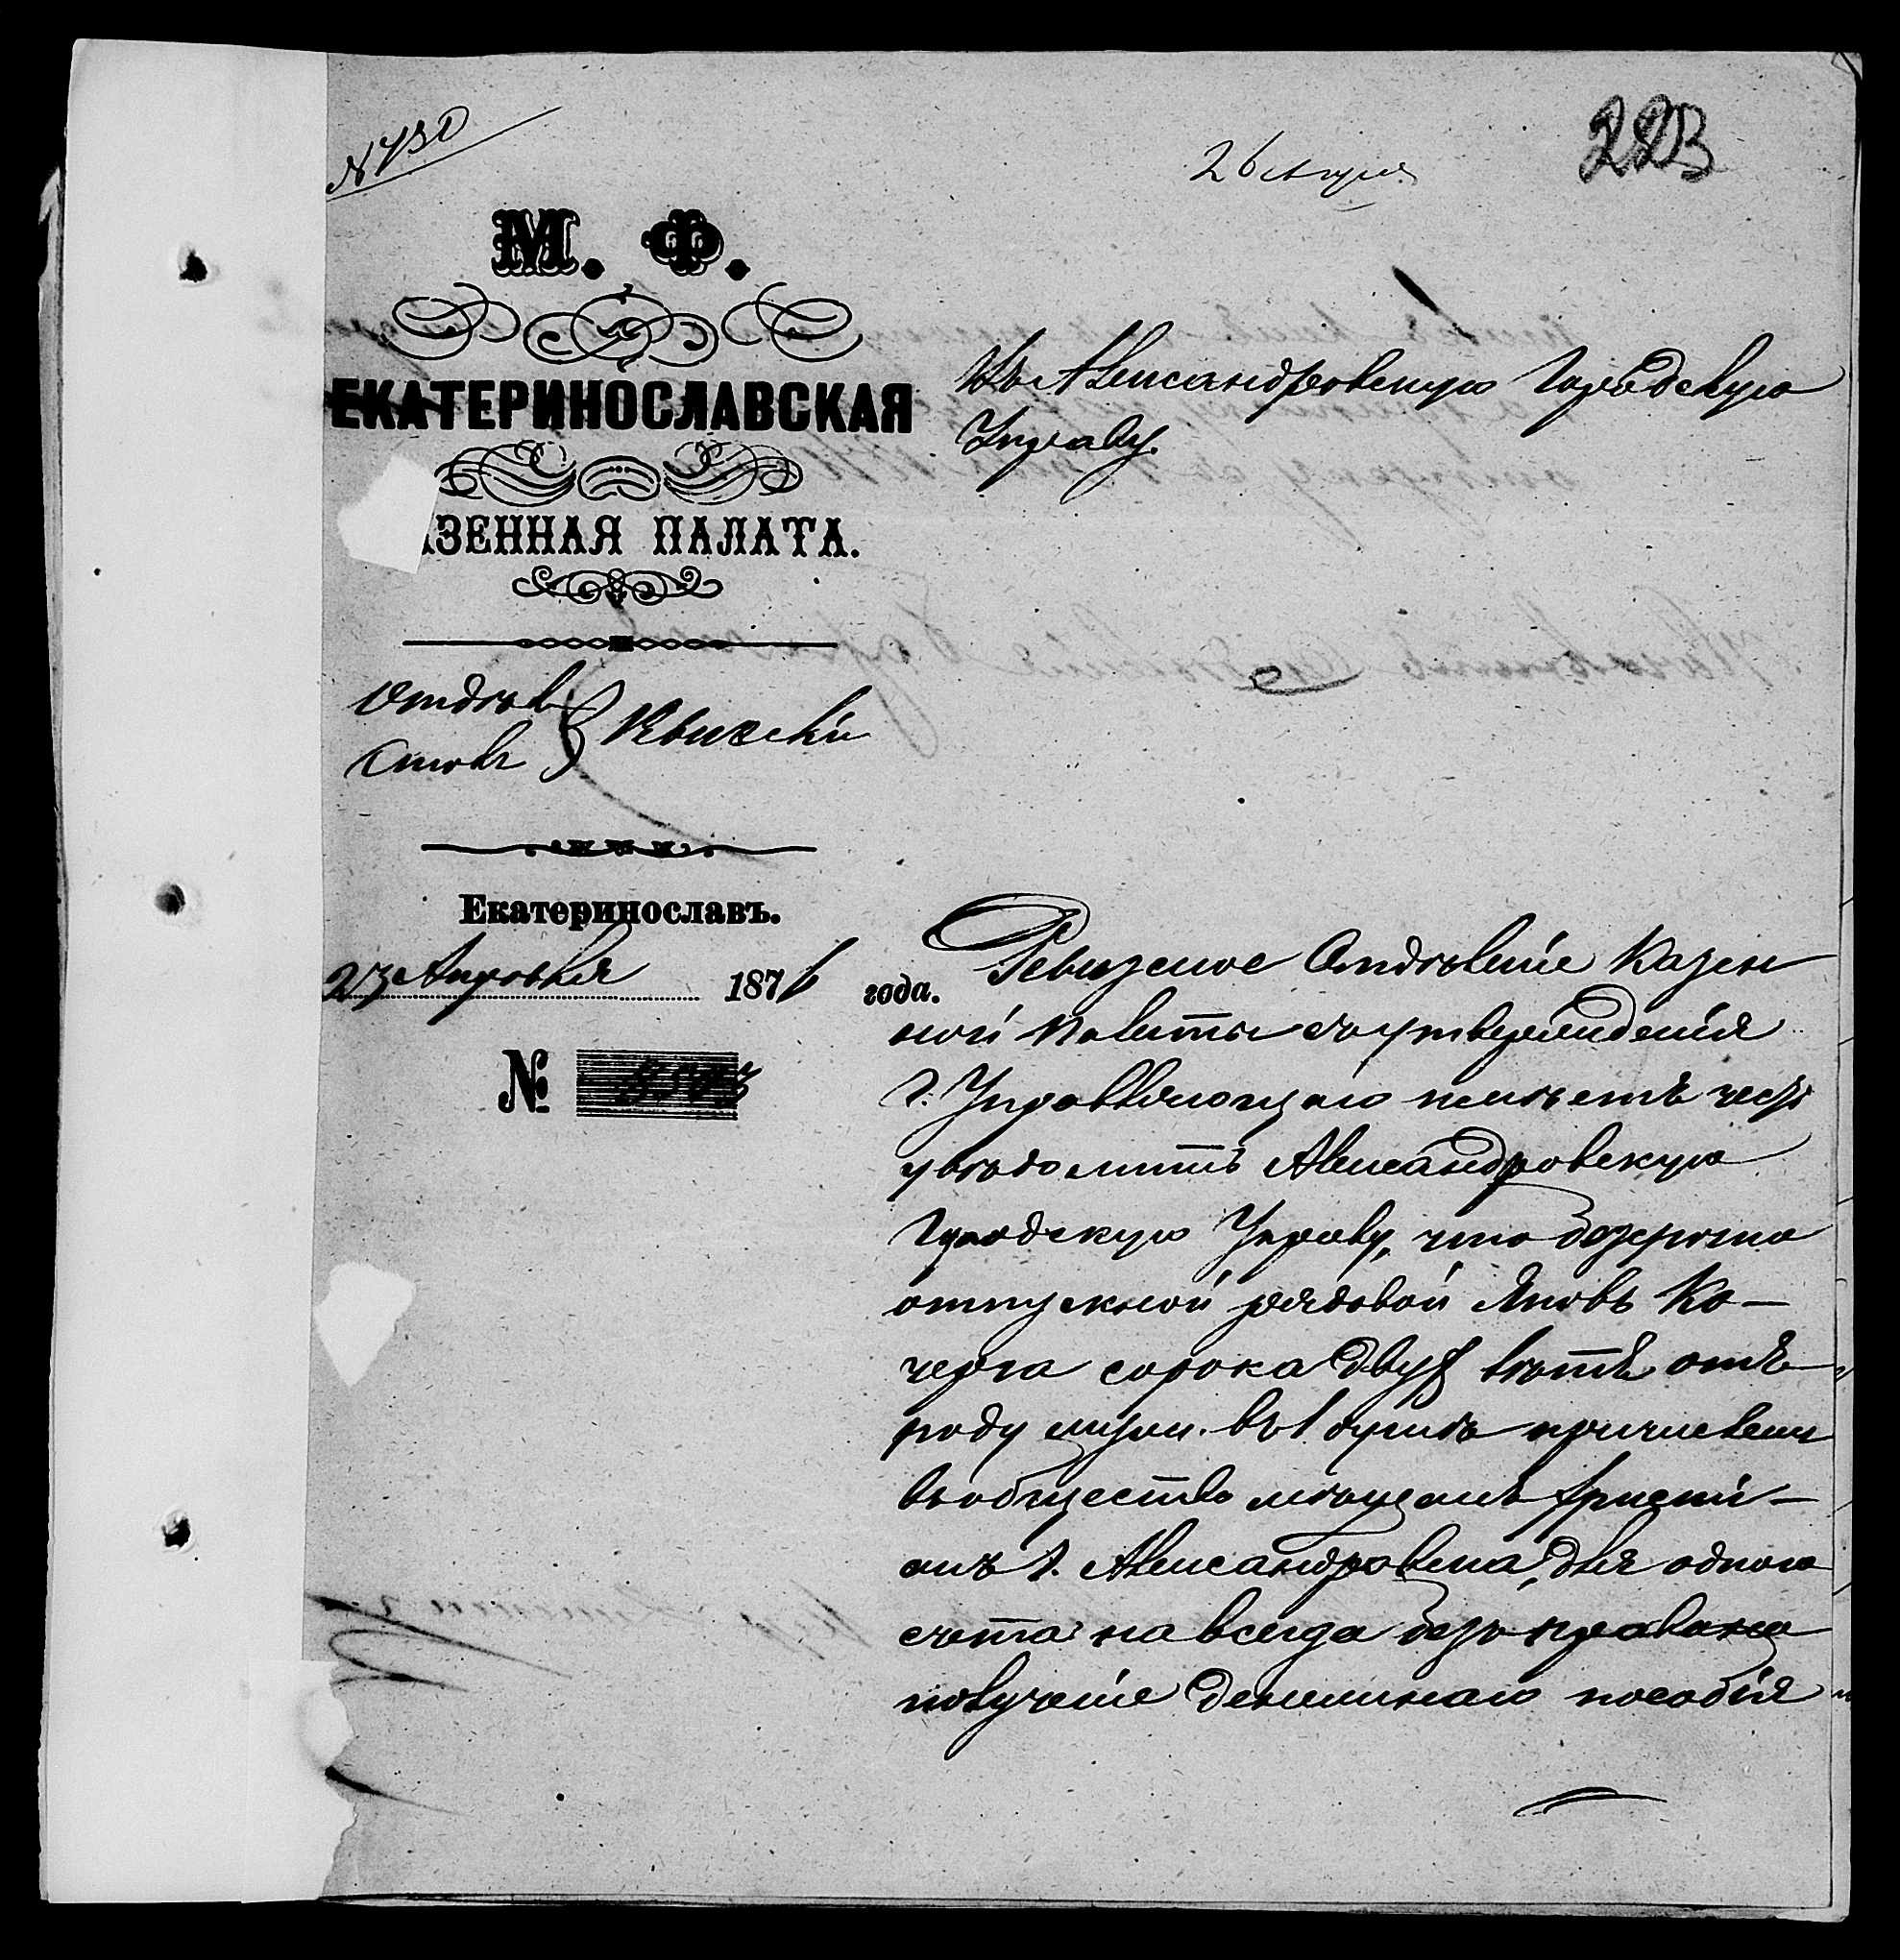 № 730
26 апреля
223
М. Ф.
ЕКАТЕРИНОСЛАВСКАЯ
АЗЕННАЯ ПАЛАТА.
Отдѣл
Столъ
Екатеринославъ.
23 Апрѣля 1876 года.
№
Въ Александровскую Городскую
Управу.
Ревизское Отдѣленіе Казен
ной Палаты съ утвержденія
г. Управляющаго имѣетъ честь
увѣдомить Александровскую
Городскую Управу, что безсрочно
отпускной рядовой Яковъ Ко-
черга сорока двухъ лѣтъ отъ
роду муж. въ 1 душѣ причисленъ
въ общество мѣщанъ христі-
анъ г. Александровска, для одного
счета на всегда безъ права на
полученіе денежнаго пособія